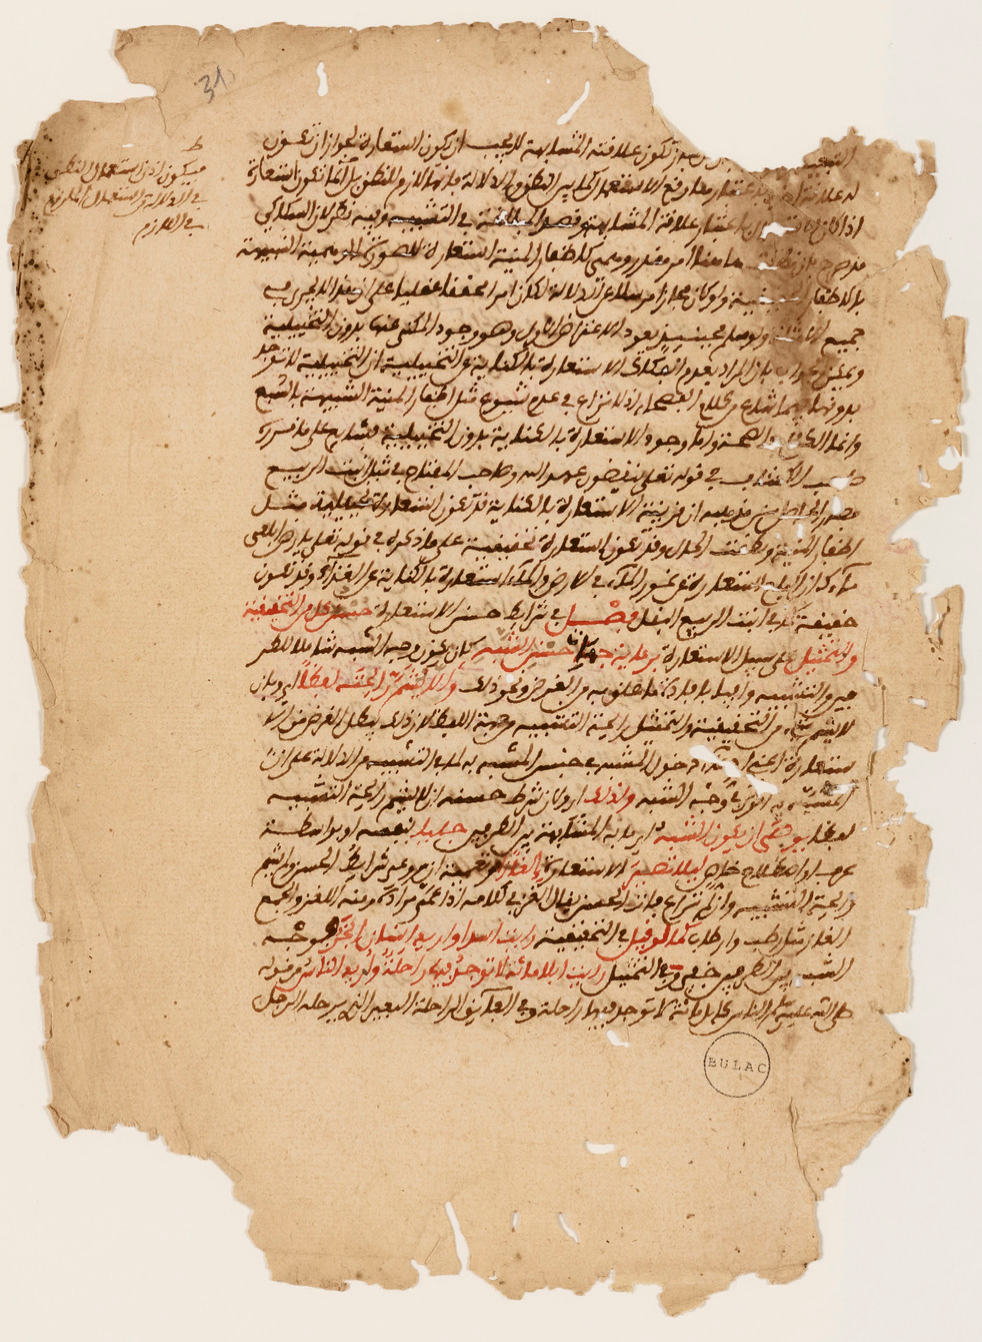 لا يجب ان تكون استعارة لجواز ان تكون
له علاقة اخرى باعتبارها وقع الاستعمال كما بين النطق والدلالة فانها لازم للنطق بل انما تكون استعارة
اذا كان الاستعمال باعتبار علاقة المشابهة وقصد المبالغة في التشبيه وفيه نظر لان السكاكي
قد صرح بان نطقت هاهنا امر مقدر وهمي كاظفار المنية المستعارة للصورة الوهمية الشبيهة
بالاظفار الحقيقية ولو كان مجازا مرسلا عن الدلالة لكان امرا محققا عقليا على ان هذا لا يجري في
جميع الامثلة ولو سلم فحينئذ يعود الاعتراض الاول وهو وجود المكنى عنها بدون التخييلية
ويمكن الجواب بان المراد بعدم انفكاك الاستعارة بالكناية عن التخييلية ان التخييلية لا توجد
بدونها فيما شاع من كلام الفصحاء اذ لا نزاع في عدم شيوع مثل اظفار المنية الشبيهة بالسبع
وانما الكلام في الصحة واما وجود الاستعارة بالكناية بدون التخييلية فشايع على ما قرره
صاحب الكشاف في قوله تعلى ينقضون عهد الله وصاحب المفتاح في مثل انبت الربيع
فصار الحاصل من مذهبه ان قرينة الاستعارة بالكناية قد تكون استعارة تخييلية مثل
اظفار المنية ونطقت الحال وقد تكون استعارة تحقيقية على ما ذكره في قوله تعلى يا ارض ابلعي
ماءك ان البلع استعارة عن غور الماء في الارض والماء استعارة بالكناية عن الغذاء وقد تكون
حقيقة كما في انبت الربيع البقل فصل في شرايط حسن الاستعارة حسن كل من التحقيقية
والتمثيل على سبيل الاستعارة برعاية جهات حسن التشبيه كان يكون وجه الشبه شاملا للطر
فين والتشبيه وافيا بافادة ما علق به من الغرض ونحو ذلك وان لا يشم رائحته لفظا اي وبان
لا يشم شيء من التحقيقية والتمثيل رائحة التشبيه من جهة اللفظ لان ذلك يبطل الغرض من الا
ستعارة اعني ادعاء دخول المشبه في جنس المشبه به لما في التشبيه من الدلالة على ان
المشبه به اقوى في وجه الشبه ولذلك اي ولان شرط حسنه ان لا يشم رائحة التشبيه
لفظا يوصى ان يكون الشبه اي ما به المشابهة بين الطرفين جليا بنفسه او بواسطة
عرف او اصطلاح خاص ليلا تصير الاستعارة الغازا وتعمية ان روعي شرايط الحسن ولم تشم
رائحة التشبيه وان لم تراع فات الحسن يقال الغز في كلامه اذا عمى مراده ومنه اللغز والجمع
الغاز مثل رطب وارطاب كما لو قيل في التحقيقية رايت اسدا واريد انسان ابخر فوجه
الشبه بين الطرفين خفي وفي التمثيل رايت ابلا مائة لا توجد فيها راحلة واريد الناس من قوله
صلى الله عليه وسلم الناس كابل مائة لا توجد فيها راحلة وفي الفايق الراحلة البعير الذي يرحله الرجل
فيكون اذن استعمال النطق
في الدلالة من استعمال الملزوم
في اللازم
31
BULAC